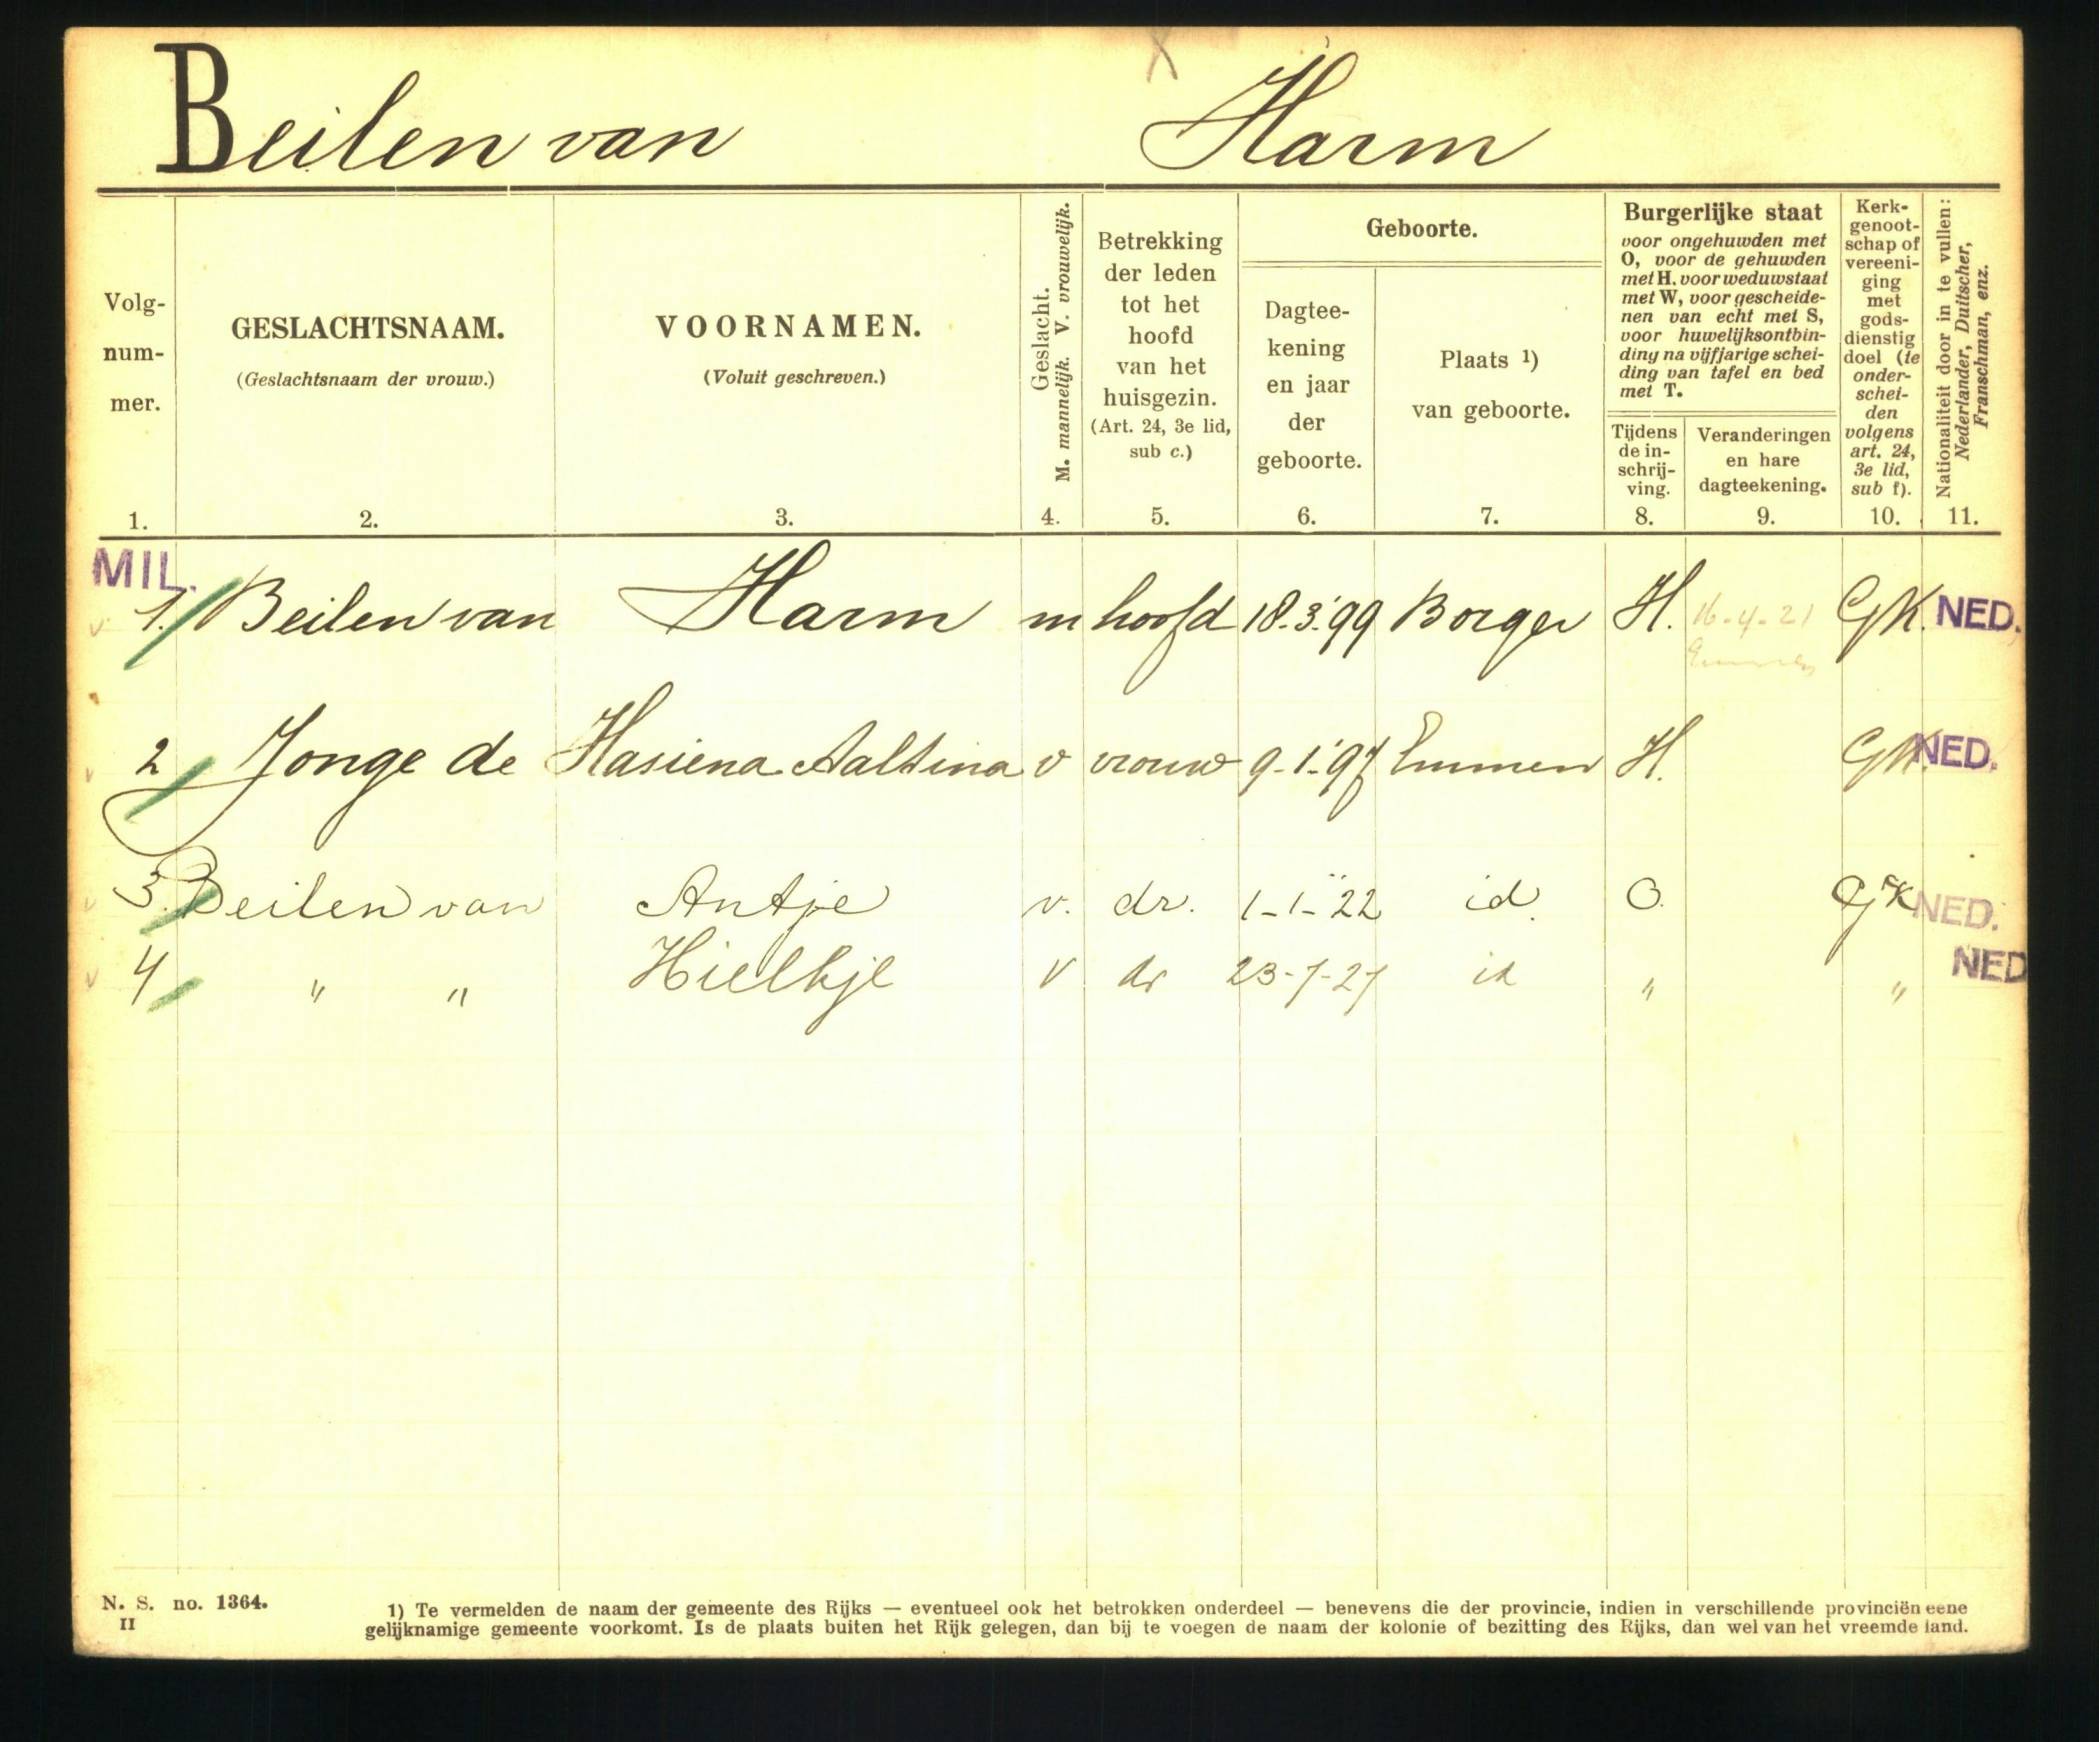 Beilen van Harm
Volg-
num-
mer.
1.
GESLACHTSNAAM.
(Geslachtsnaam der vrouw.)
2.
VOORNAMEN.
(Voluit geschreven.)
3.
Geslacht.
M. mannelijk. V. vrouwelijk.
4.
Betrekking
der leden
tot het
hoofd
van het
huisgezin.
(Art. 24, 3e lid,
sub c.)
5.
Geboorte.
Dagtee-
kening
en jaar
der
geboorte.
6.
Plaats 1)
van geboorte.
7.
Burgerlijke staat
voor ongehuwden met
O, voor de gehuwden
met H. voor weduwstaat
met W, voor gescheide-
nen van echt met S,
voor huwelijksontbin-
ding na vijfjarige schei-
ding van tafel en bed
met T.
Tijdens
de in-
schrij-
ving.
8.
Veranderingen
en hare
dagteekening.
9.
Kerk-
genoot-
schap of
vereeni-
ging
met
gods-
dienstig
doel (te
onder-
schei-
den
volgens
art. 24,
3e lid,
sub f).
10.
Nationaliteit door in te vullen:
Nederlander, Duitscher,
Franschman, enz.
11.
MIL.
1. Beilen van Harm m hoofd 18.3.'99 Borger H. 16-4-21 GK. NED.
2 Jonge de Hasiena Aaltina v vrouw 9-1-'97 Emmen H. GK. NED.
3. Beilen van Antje v. dr. 1-1-22 id. O. GK NED.
4 " " Hielkje v dr 23-7-27 id " " NED
N. S. no. 1364.
II
1) Te vermelden de naam der gemeente des Rijks — eventueel ook het betrokken onderdeel — benevens die der provincie, indien in verschillende provinciën eene
gelijknamige gemeente voorkomt. Is de plaats buiten het Rijk gelegen, dan bij te voegen de naam der kolonie of bezitting des Rijks, dan wel van het vreemde land.